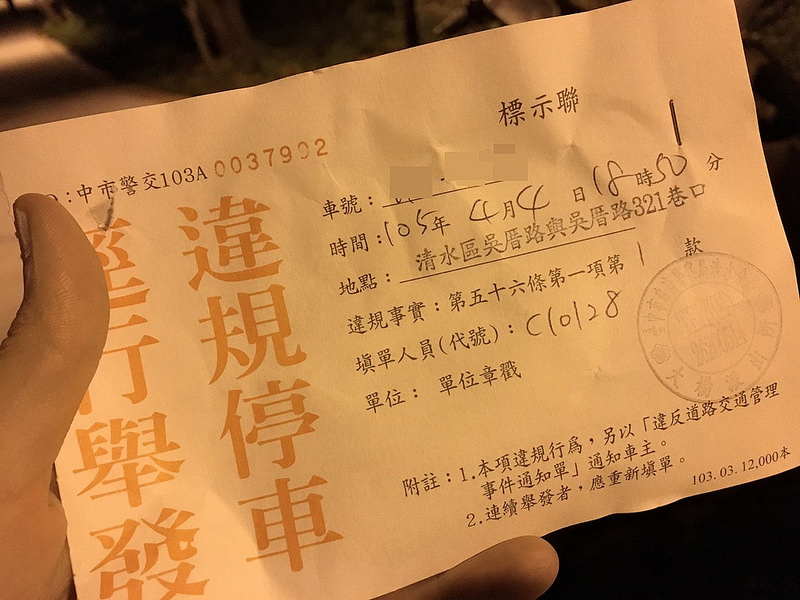 標示聯
:中市警交103A 0037902
違規停車
逕行舉發
車號:
時間:105年4月4日18時50分
地點:清水區吳厝路與吳厝路321巷口
違規事實:第五十六條第一項第1款
填單人員(代號):C10128
單位:單位章戳
附註:1.本項違規行為,另以「違反道路交通管理
事件通知單」通知車主。
2.連續舉發者,應重新填單。
103.03.12,000本